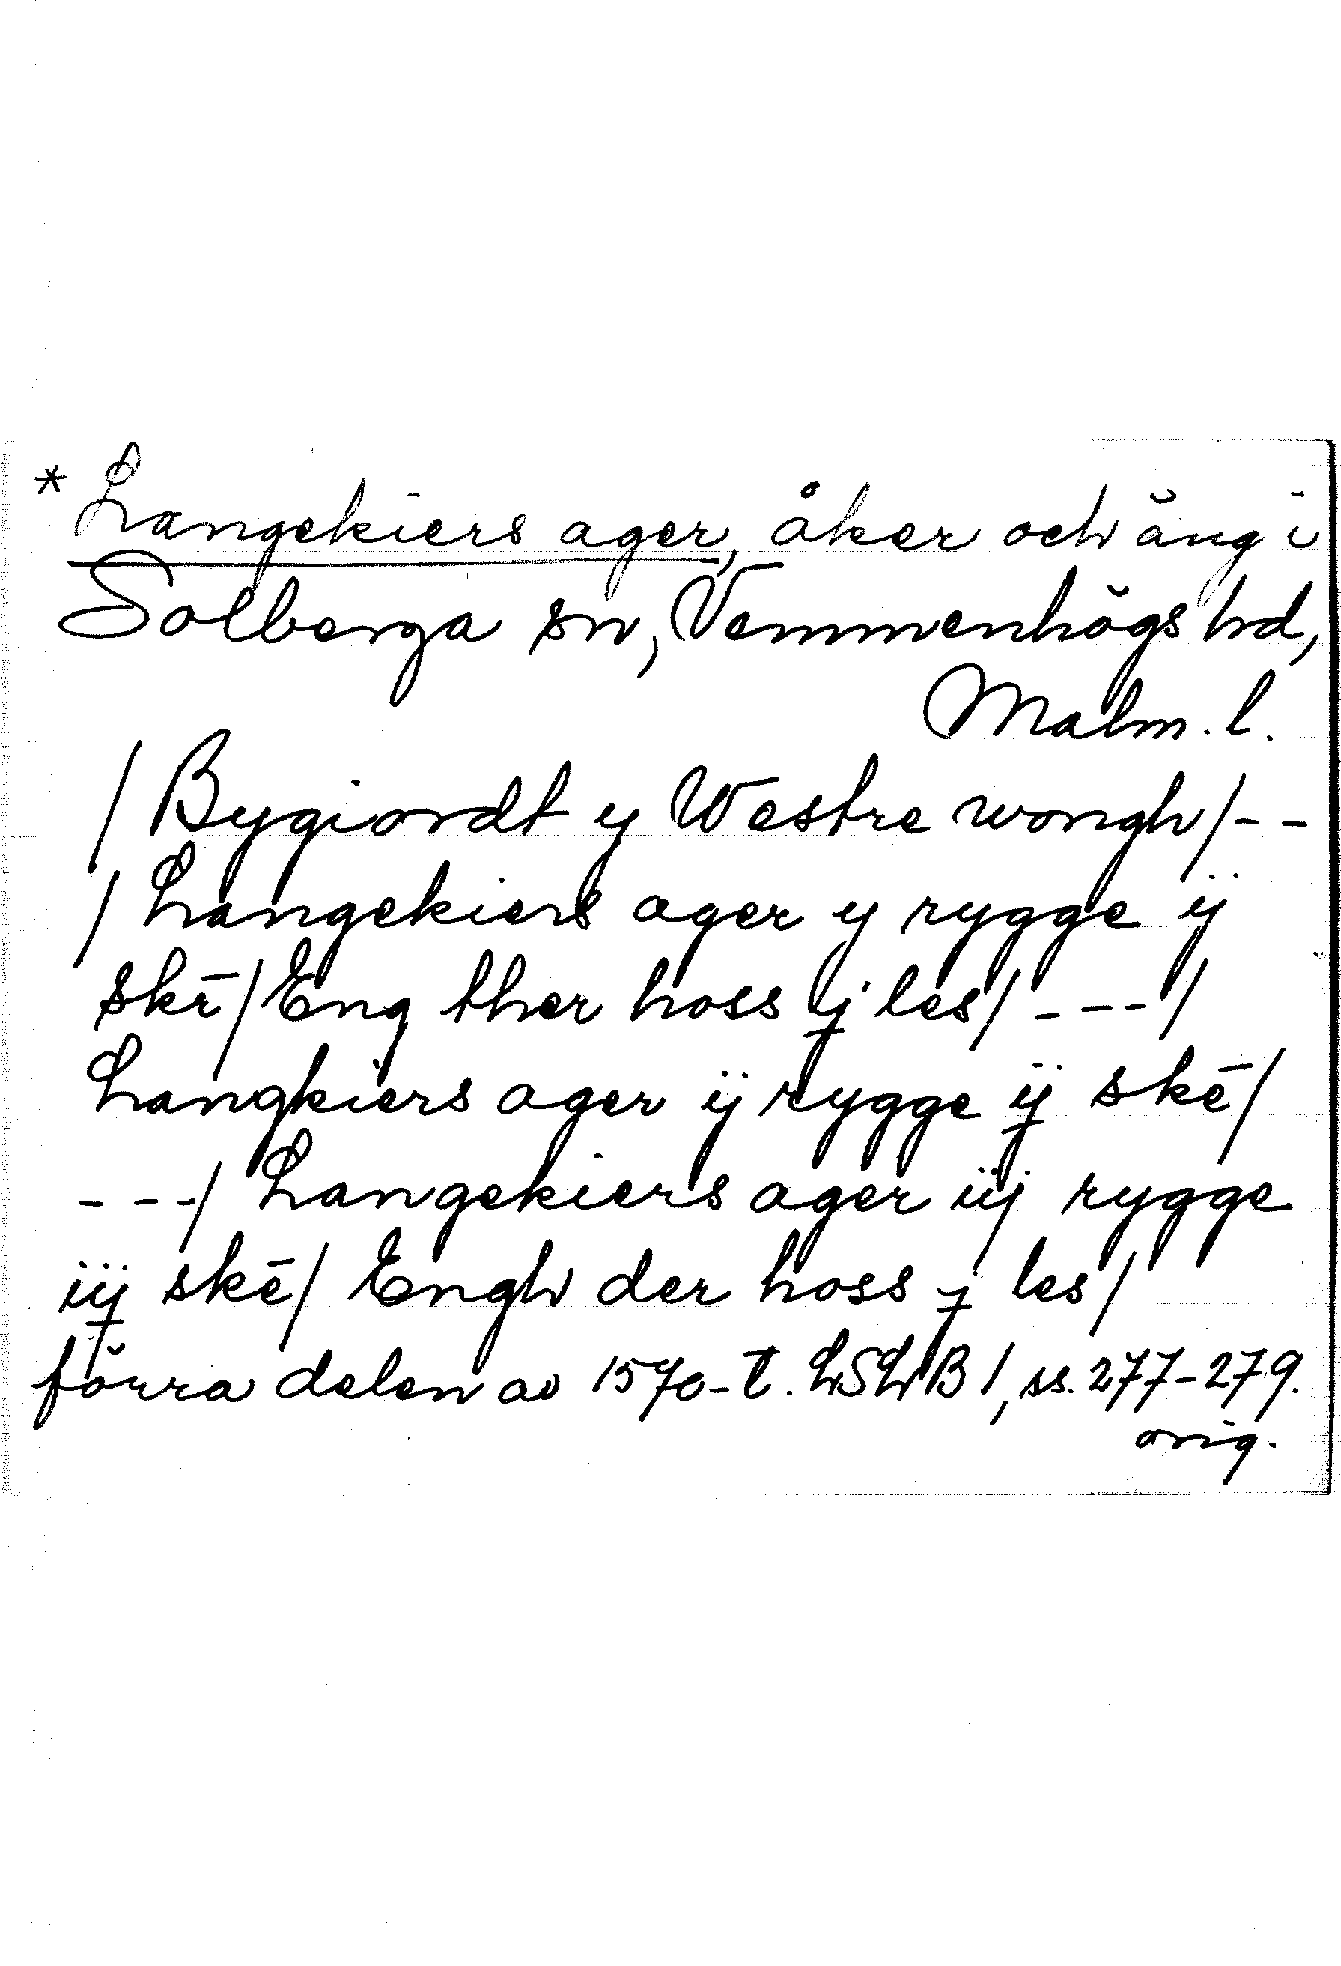 * Langekiers ager, åker och äng i
Solberga sn, Vemmenhögs hd,
Malm. l.
/ Bygiordt y Westre wongh/ - -
/ Langekiers ager y rygge ÿ
skē/ Eng ther hoss ij les/ - - - /
Langkiers ager ÿ rygge ij skē/
- - -/ Langekiers ager iij rygge
iij skē/ Engh der hoss j les/
förra delen av 1570-t. LSLB 1, ss. 277-279.
orig.